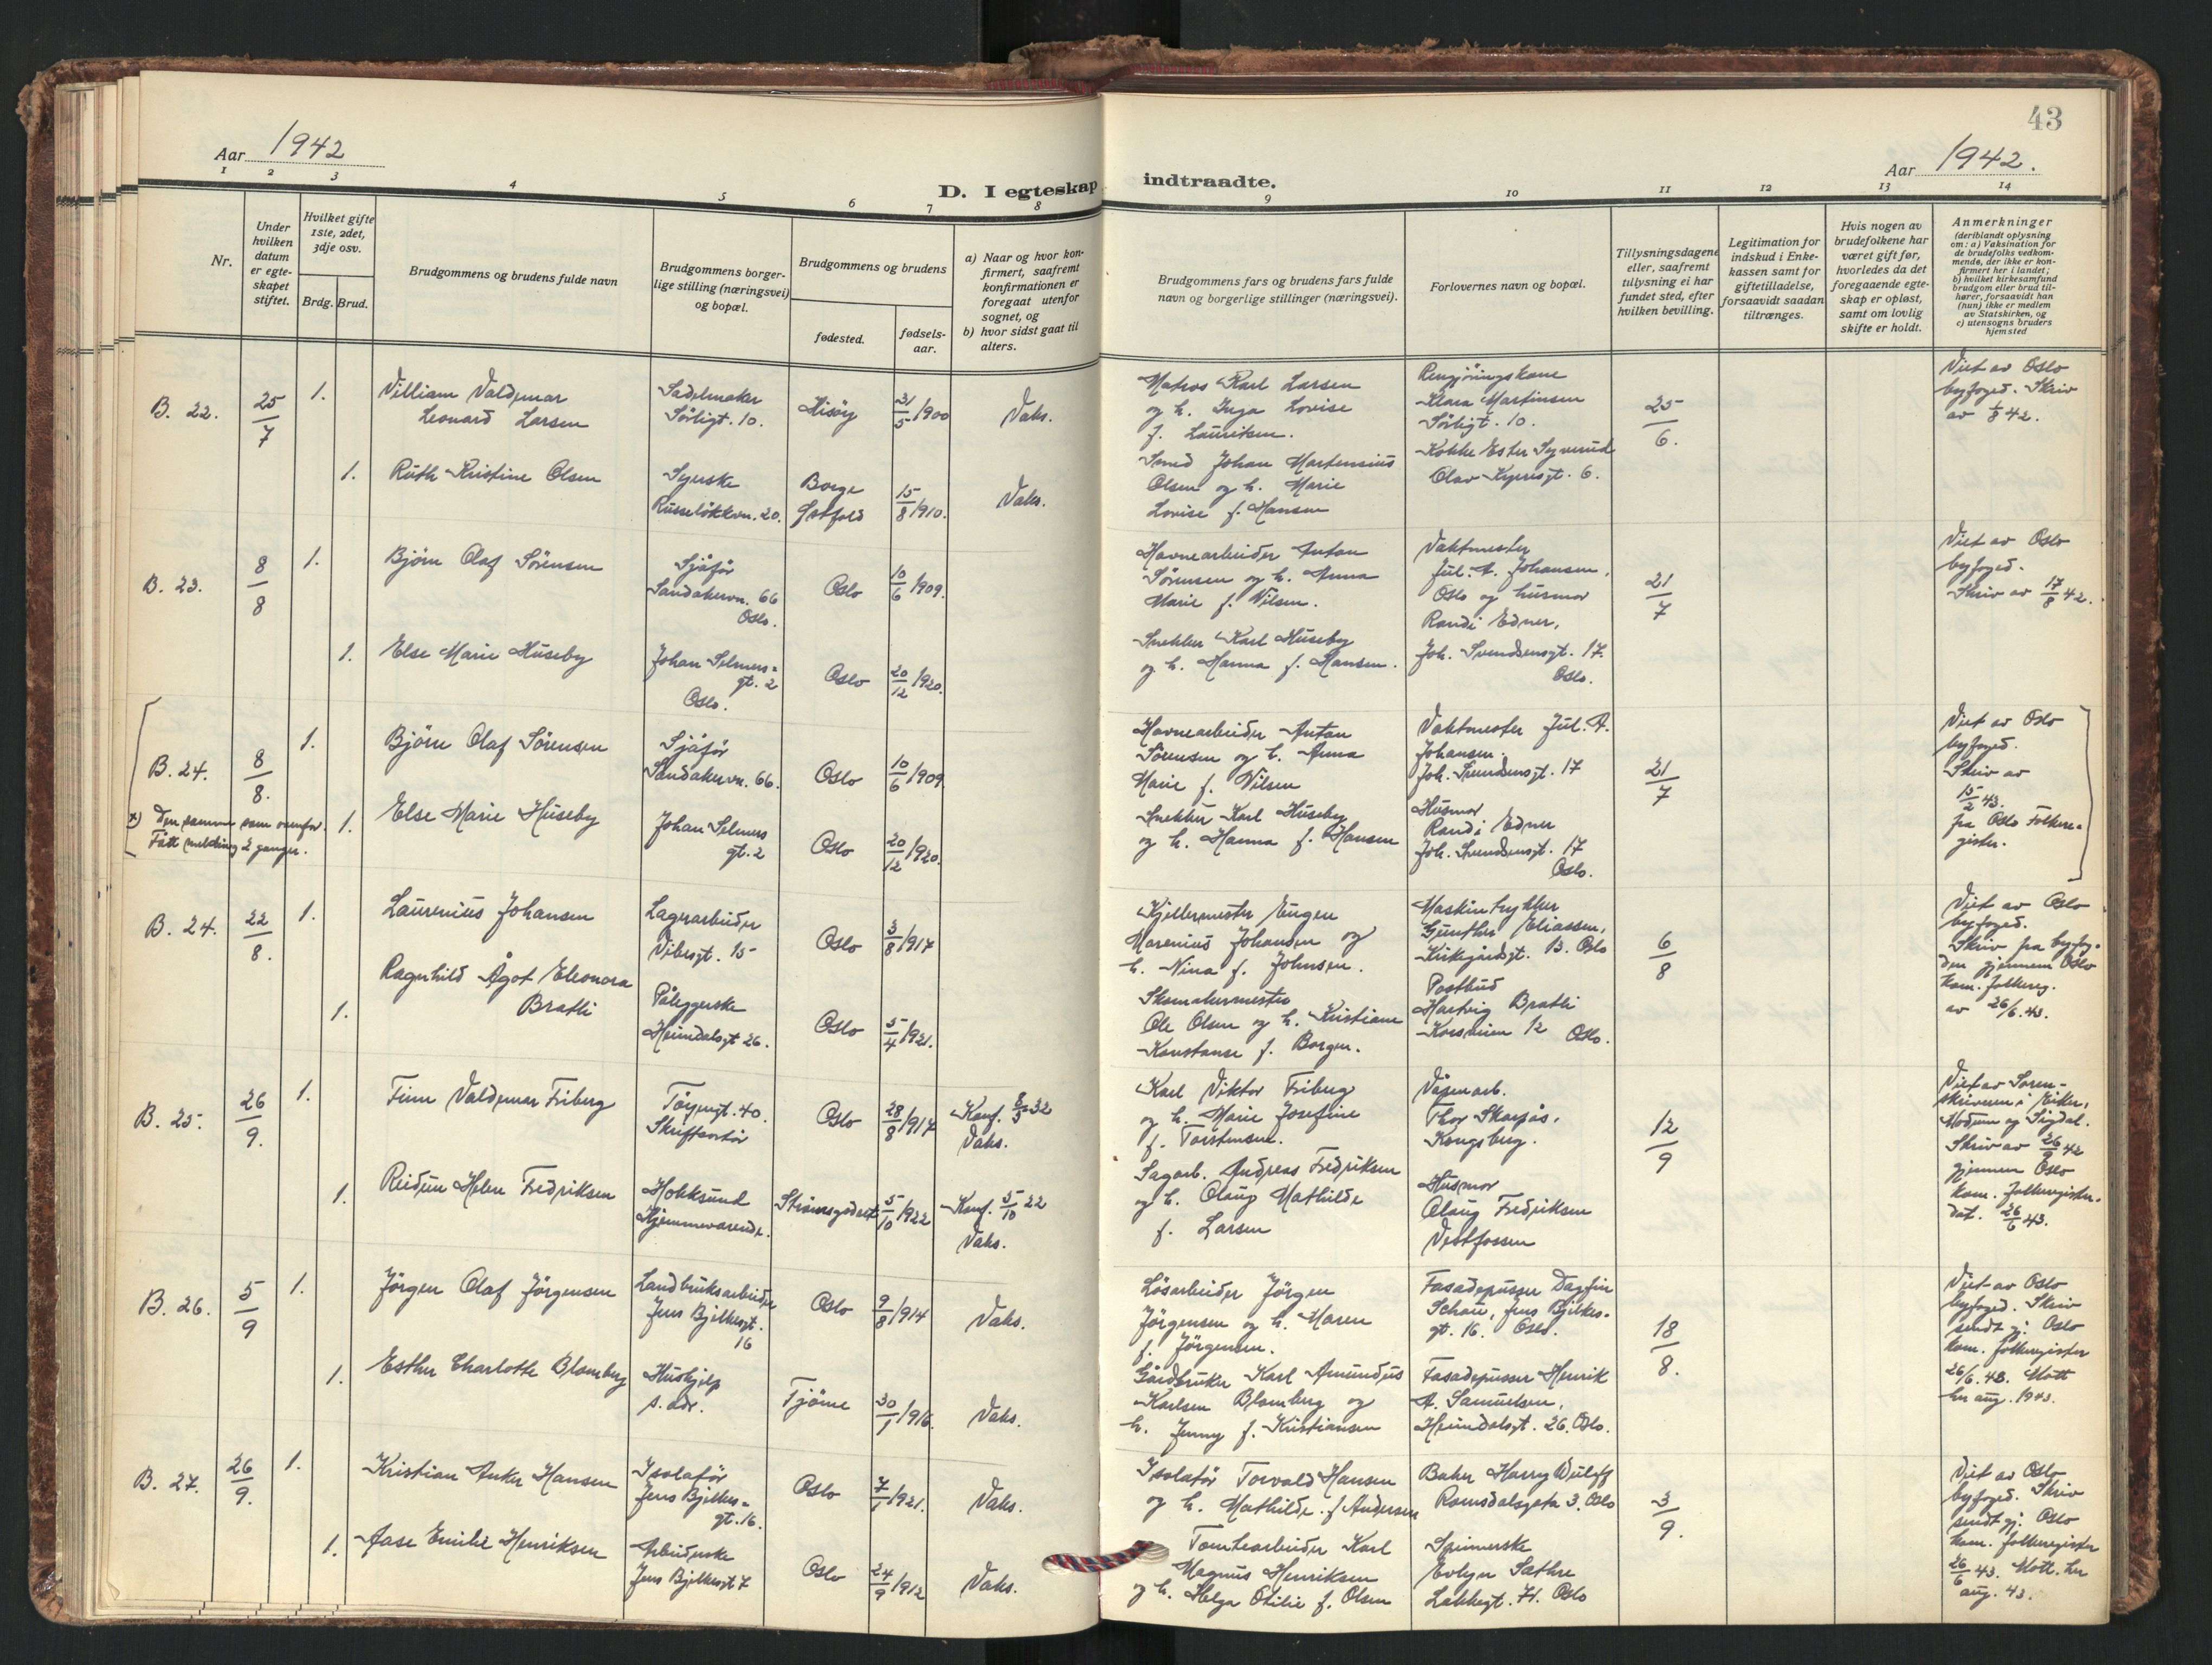 43
Aar 1942
Aar 1942.
D. I egteskap indtraadte.
1 2 3 4 5 6 7 8 9 10 11 12 13 14
Nr.
Under hvilken datum er egte-skapet stiftet.
Hvilket gifte 1ste, 2det, 3dje osv.
Brdg. Brud.
Brudgommens og brudens fulde navn
Brudgommens borger-lige stilling (næringsvei) og bopæl.
Brudgommens og brudens
fødested.
fødsels-aar.
a) Naar og hvor kon-firmert, saafremt konfirmationen er foregaat utenfor sognet, og
b) hvor sidst gaat til alters.
Brudgommens fars og brudens fars fulde navn og borgerlige stillinger (næringsvei).
Forlovernes navn og bopæl.
Tillysningsdagene eller, saafremt tillysning ei har fundet sted, efter hvilken bevilling.
Legitimation for indskud i Enke-kassen samt for giftetilladelse, forsaavidt saadan tiltrænges.
Hvis nogen av brudefolkene har været gift før, hvorledes da det foregaaende egte-skap er opløst, samt om lovlig skifte er holdt.
Anmerkninger
(deriblandt oplysning om: a) Vaksination for de brudefolks vedkom-mende, der ikke er kon-firmert her i landet; b) hvilket kirkesamfund brudgom eller brud til-hører, forsaavidt han (hun) ikke er medlem av Statskirken, og c) utensogns bruders hjemsted
B. 22. 25/7 1.
Villiam Valdemar
Leonard Larsen
Sadelmaker
Sörligt. 10.
Hisöy 31/5 1900 Vaks.
Matros Karl Larsen
og h. Inga Lovise
f. Lauritsen.
Rengjöringskone
Klara Martinsen
Sörligt. 10.
25/6.
Viet av Oslo
byfoged. Skriv
av 1/8 42.
1. Ruth Kristine Olsen
Syerske
Russelökkvn. 20.
Borge
Östfold
15/8 1910. Vaks.
Smed Johan Martensius
Olsen og h. Marie
Lovise f. Hansen
Kokke Ester Syverud
Olav Kyrresgt. 6.
B. 23. 8/8 1.
Björn Olaf Sörensen
Sjåför
Sandakervn. 66
Oslo.
Oslo 10/6 1909.
Havnearbeider Anton
Sörensen og h. Anna
Marie f. Nilsen.
Vaktmester
Jul. A. Johansen,
Oslo og husmor
Randi Edner,
Joh. Svendsensgt. 17.
Oslo.
21/7
Viet av Oslo
byfoged.
Skriv av 17/8 42.
1. Else Marie Huseby
Johan Selmers-
gt. 2
Oslo.
Oslo 20/12 1920.
Snekker Karl Huseby
og h. Hanna f. Hansen.
B. 24. 8/8. 1.
Björn Olaf Sörensen
Sjåför
Sandakervn. 66.
Oslo 10/6 1909
Havnearbeider Anton
Sörensen og h. Anna
Marie f. Nilsen
Vaktmester Jul. A.
Johansen.
Joh. Svendsensgt. 17
21/7
Viet av Oslo
byfoged.
Skriv av
15/2 43.
fra Oslo Folkere-
gister.
x) Den samme som ovenfor.
Fått melding 2 ganger.
1. Else Marie Huseby
Johan Selmers
gt. 2
Oslo 20/12 1920.
Snekker Karl Huseby
og h. Hanna f. Hansen
Husmor
Randi Edner
Joh. Svendsensgt. 17
Oslo.
B. 24. 22/8. 1.
Laurenius Johansen
Lagerarbeider
Vibesgt. 15
Oslo 3/8 1917
Kjellermester Eugen
Marenius Johansen og
h. Nina f. Johnsen.
Maskintrykker
Gunther Eliassen,
Kirkegårdsgt. 13. Oslo
6/8
Viet av Oslo
byfoged.
Skriv fra byfog-
den gjennem Oslo
kom. folkereg.
av 26/6.43.
1. Ragnhild Ågot Eleonora
Bratli
Påleggerske
Heimdalsgt 26.
Oslo 5/4 1921.
Skomakermester
Ole Olsen og h. Kristiane
Konstanse f. Borgen.
Postbud
Hartvig Bratli
Korsveien 12 Oslo.
B. 25. 26/9. 1.
Finn Valdemar Friberg
Töyengt. 40.
Skriftsortör
Oslo 28/8 1917
Konf. 8/5 32
Vaks.
Karl Viktor Friberg
og h. Marie Josefine
f. Torstensen.
Våpenarb.
Thor Skarpås,
Kongsberg.
12/9
Viet av Soren-
skriveren i Eiker,
Modum og Sigdal.
Skriv av 26/9 42
gjennem Oslo
kom. folkeregister.
dat. 26/6 43.
1. Reidun Helen Fredriksen
Hokksund
Hjemmeværende.
Strömsgodset 5/10 1922
Konf. 5/10 22
Vaks.
Sagarb. Andreas Fredriksen
og h. Olaug Mathilde
f. Larsen
Husmor
Olaug Fredriksen
Vestfossen
B. 26. 5/9 1.
Jörgen Olaf Jörgensen
Landbruksarbeider
Jens Bjelkesgt.
16
Oslo 9/8 1914 Vaks.
Lösarbeider Jörgen
Jörgensen og h. Maren
f. Jörgensen.
Fasadepusser Dagfin
Schau, Jens Bjelkes-
gt. 16. Oslo.
18/8.
Viet av Oslo
byfoged. Skriv
sendt gj. Oslo
kom. folkeregister
26/6.43. Mott
her aug. 1943.
1. Esther Charlotte Blomberg
Hushjelp
s. adr.
Tjöme 30/1 1916. Vaks.
Gårdbruker Karl Amundus
Karlsen Blomberg og
h. Jenny f. Kristiansen
Fasadepusser Henrik
A. Samuelsen,
Heimdalsgt. 26. Oslo.
B. 27. 26/9. 1.
Kristian Anker Hansen
Isolatör
Jens Bjelkes-
gt. 16.
Oslo 7/1 1921. Vaks.
Isolatör Torvald Hansen
og h. Mathilde f. Andersen
Baker Harry Wulff
Romsdalsgata 3. Oslo
3/9.
Viet av Oslo
byfoged. Skriv
sendt gj. Oslo
kom. folkeregister
26/6 43. Mott. her
aug. 43.
1. Aase Emilie Henriksen
Arbeiderske
Jens Bjelkesgt 7
Oslo 24/9 1912 Vaks.
Tomtearbeider Karl
Magnus Henriksen
og h. Helga Otilie f. Olsen
Spinnerske
Evelyn Sathre
Lakkegt. 71. Oslo